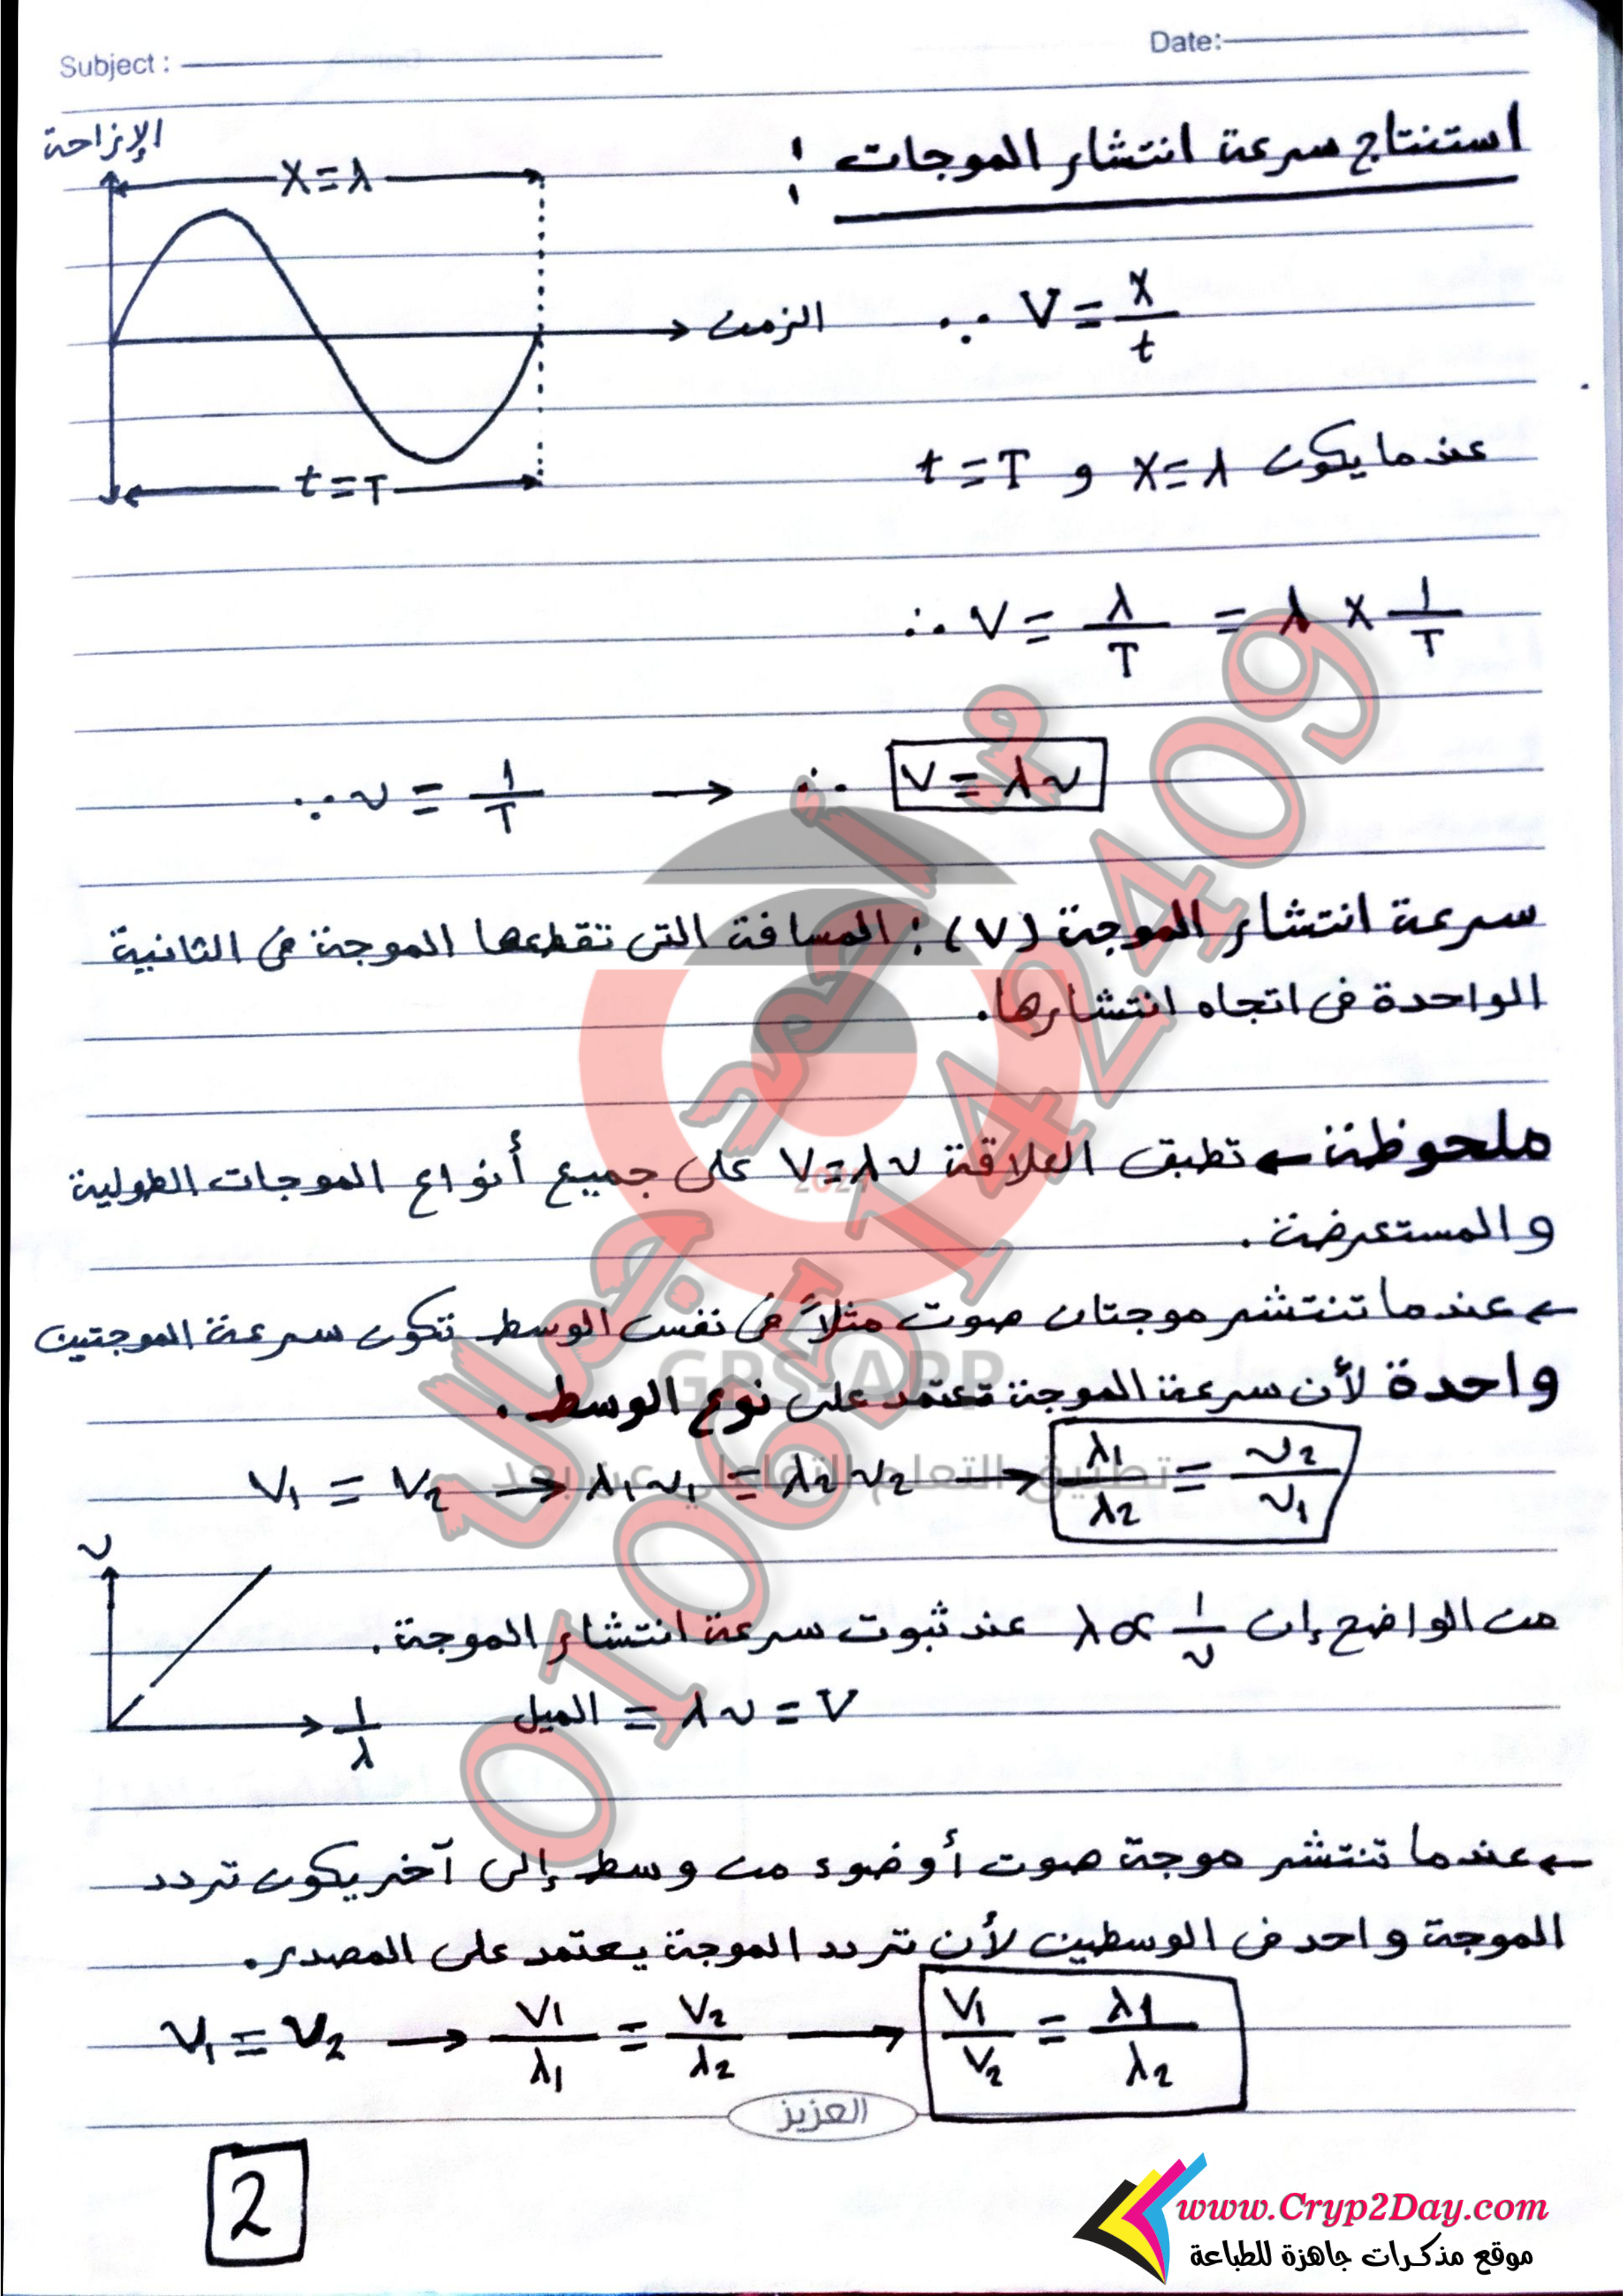 Subject :
Date:
استنتاج سرعة انتشار الموجات :
الإزاحة
X = λ
الزمن
t = T
∵ V = x/t
عندما يكون x = λ و t = T
∴ V = λ/T = λ × 1/T
∵ ν = 1/T → ∴ V = λν
سرعة انتشار الموجة (V) : المسافة التى تقطعها الموجة فى الثانية
الواحدة فى اتجاه انتشارها.
ملحوظة ← تطبق العلاقة V=λν على جميع أنواع الموجات الطولية
والمستعرضة.
← عندما تنتشر موجتان صوت مثلاً فى نفس الوسط تكون سرعة الموجتين
واحدة لأن سرعة الموجة تعتمد على نوع الوسط.
V₁ = V₂ → λ₁ν₁ = λ₂ν₂ → λ₁/λ₂ = ν₂/ν₁
ν
1/λ
من الواضح إن λ ∝ 1/ν عند ثبوت سرعة انتشار الموجة.
الميل = λν = V
← عندما تنتشر موجة صوت أو ضوء من وسط إلى آخر يكون تردد
الموجة واحد فى الوسطين لأن تردد الموجة يعتمد على المصدر.
ν₁ = ν₂ → V₁/λ₁ = V₂/λ₂ → V₁/V₂ = λ₁/λ₂
العزيز
2
م. أحمد جمال
01065142409
2021
GPS-APP
تطبيق التعلم التفاعلي عن بعد
www.Cryp2Day.com
موقع مذكرات جاهزة للطباعة